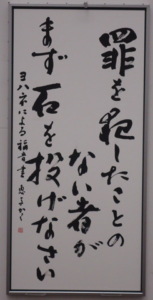 罪を犯したことの
ない者が
まず石を投げなさい
ヨハネによる福音書